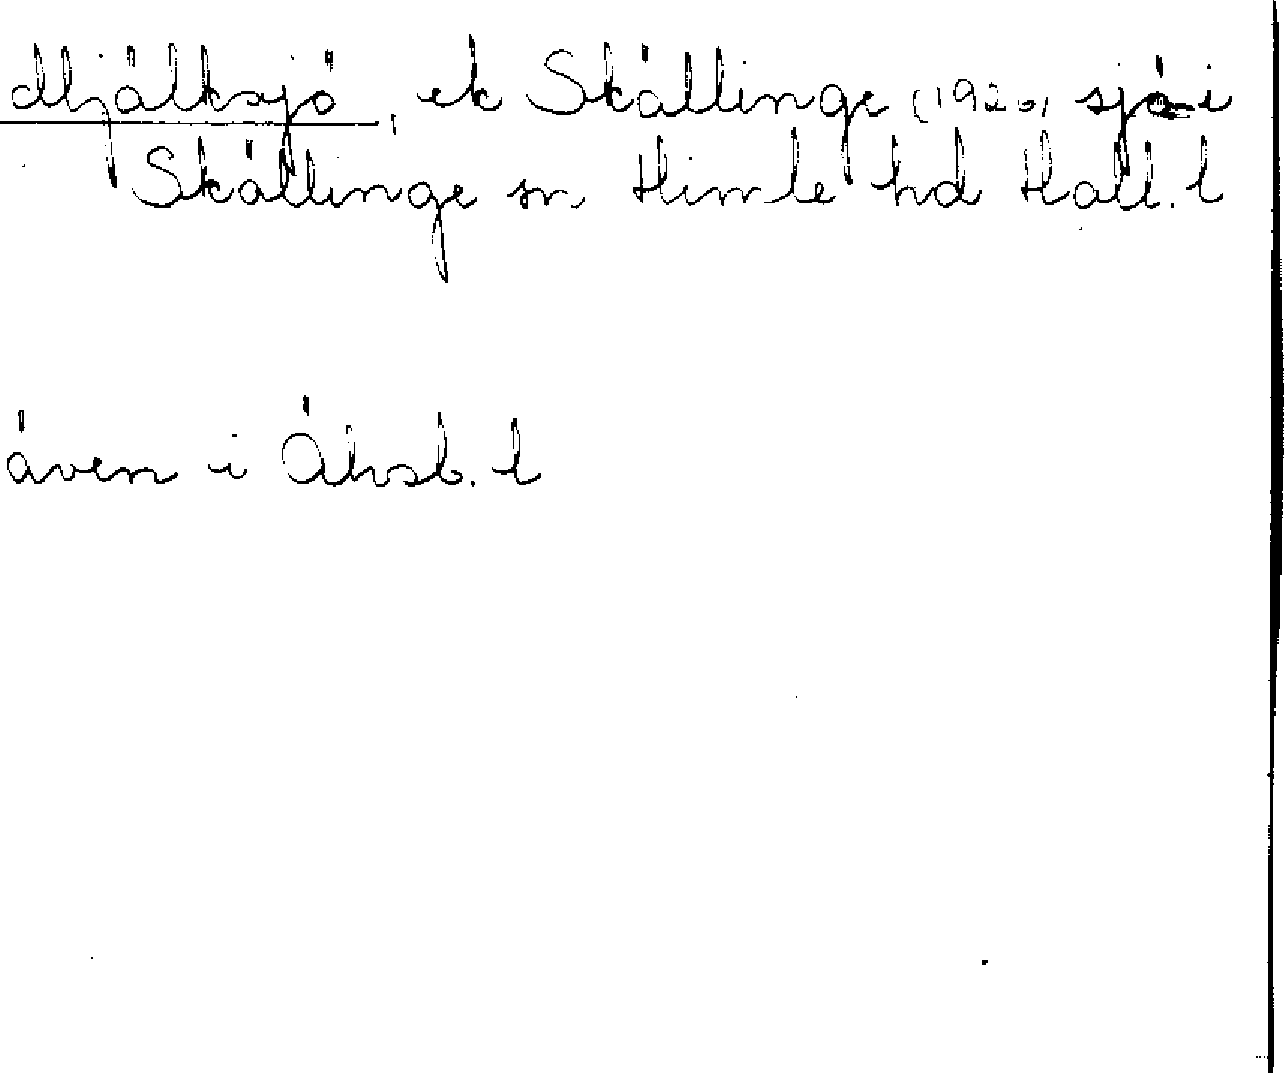 Mjälksjö, ek Skällinge (1920) sjö i
Skällinge sn Himle hd Hall. l
även i Älvsb. l